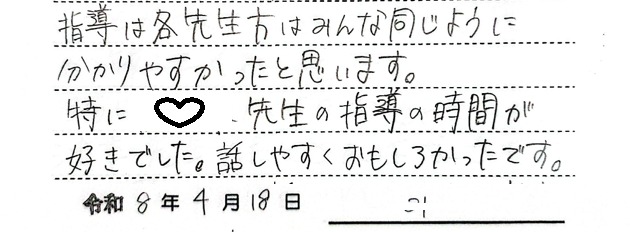 指導は各先生方はみんな同じように
分かりやすかったと思います。
特に ♡ 先生の指導の時間が
好きでした。話しやすくおもしろかったです。
令和 8 年 4 月 18 日